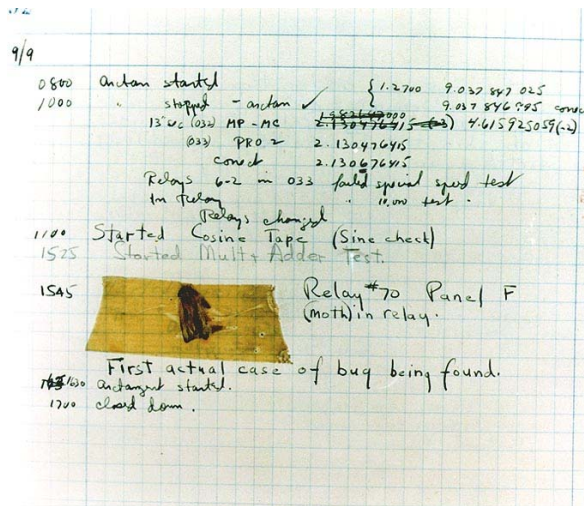 9/9
0800 Antan started
1000 " stopped - antan ✓ { 1.2700 9.037 847 025
9.037 846 995 conect
13"uc (032) MP - MC 2.130476415 4.615925059(-2)
(033) PRO 2 2.130476415
conect 2.130676415
Relays 6-2 in 033 failed special speed test
In Relay " 10,000 test .
Relays changed
1100 Started Cosine Tape (Sine check)
1525 Started Mult + Adder Test.
1545 Relay #70 Panel F
(moth) in relay.
First actual case of bug being found.
1630 antangent started.
1700 closed down .